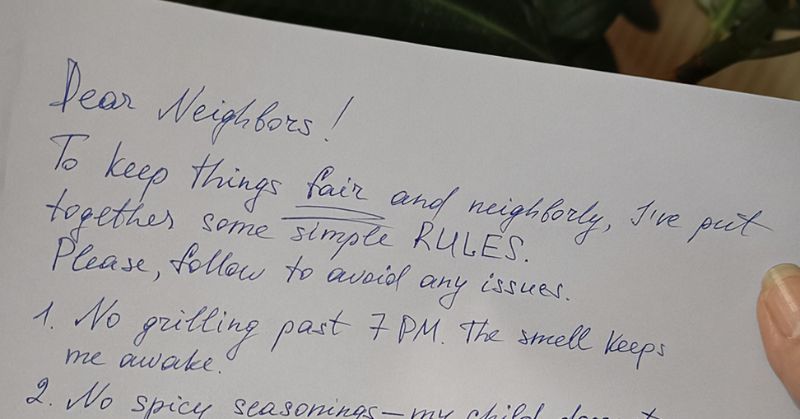 Dear Neighbors!
To keep things fair and neighborly, I've put
together some simple RULES.
Please, follow to avoid any issues.
1. No grilling past 7 PM. The smell keeps
me awake.
2. No spicy seasonings - my child